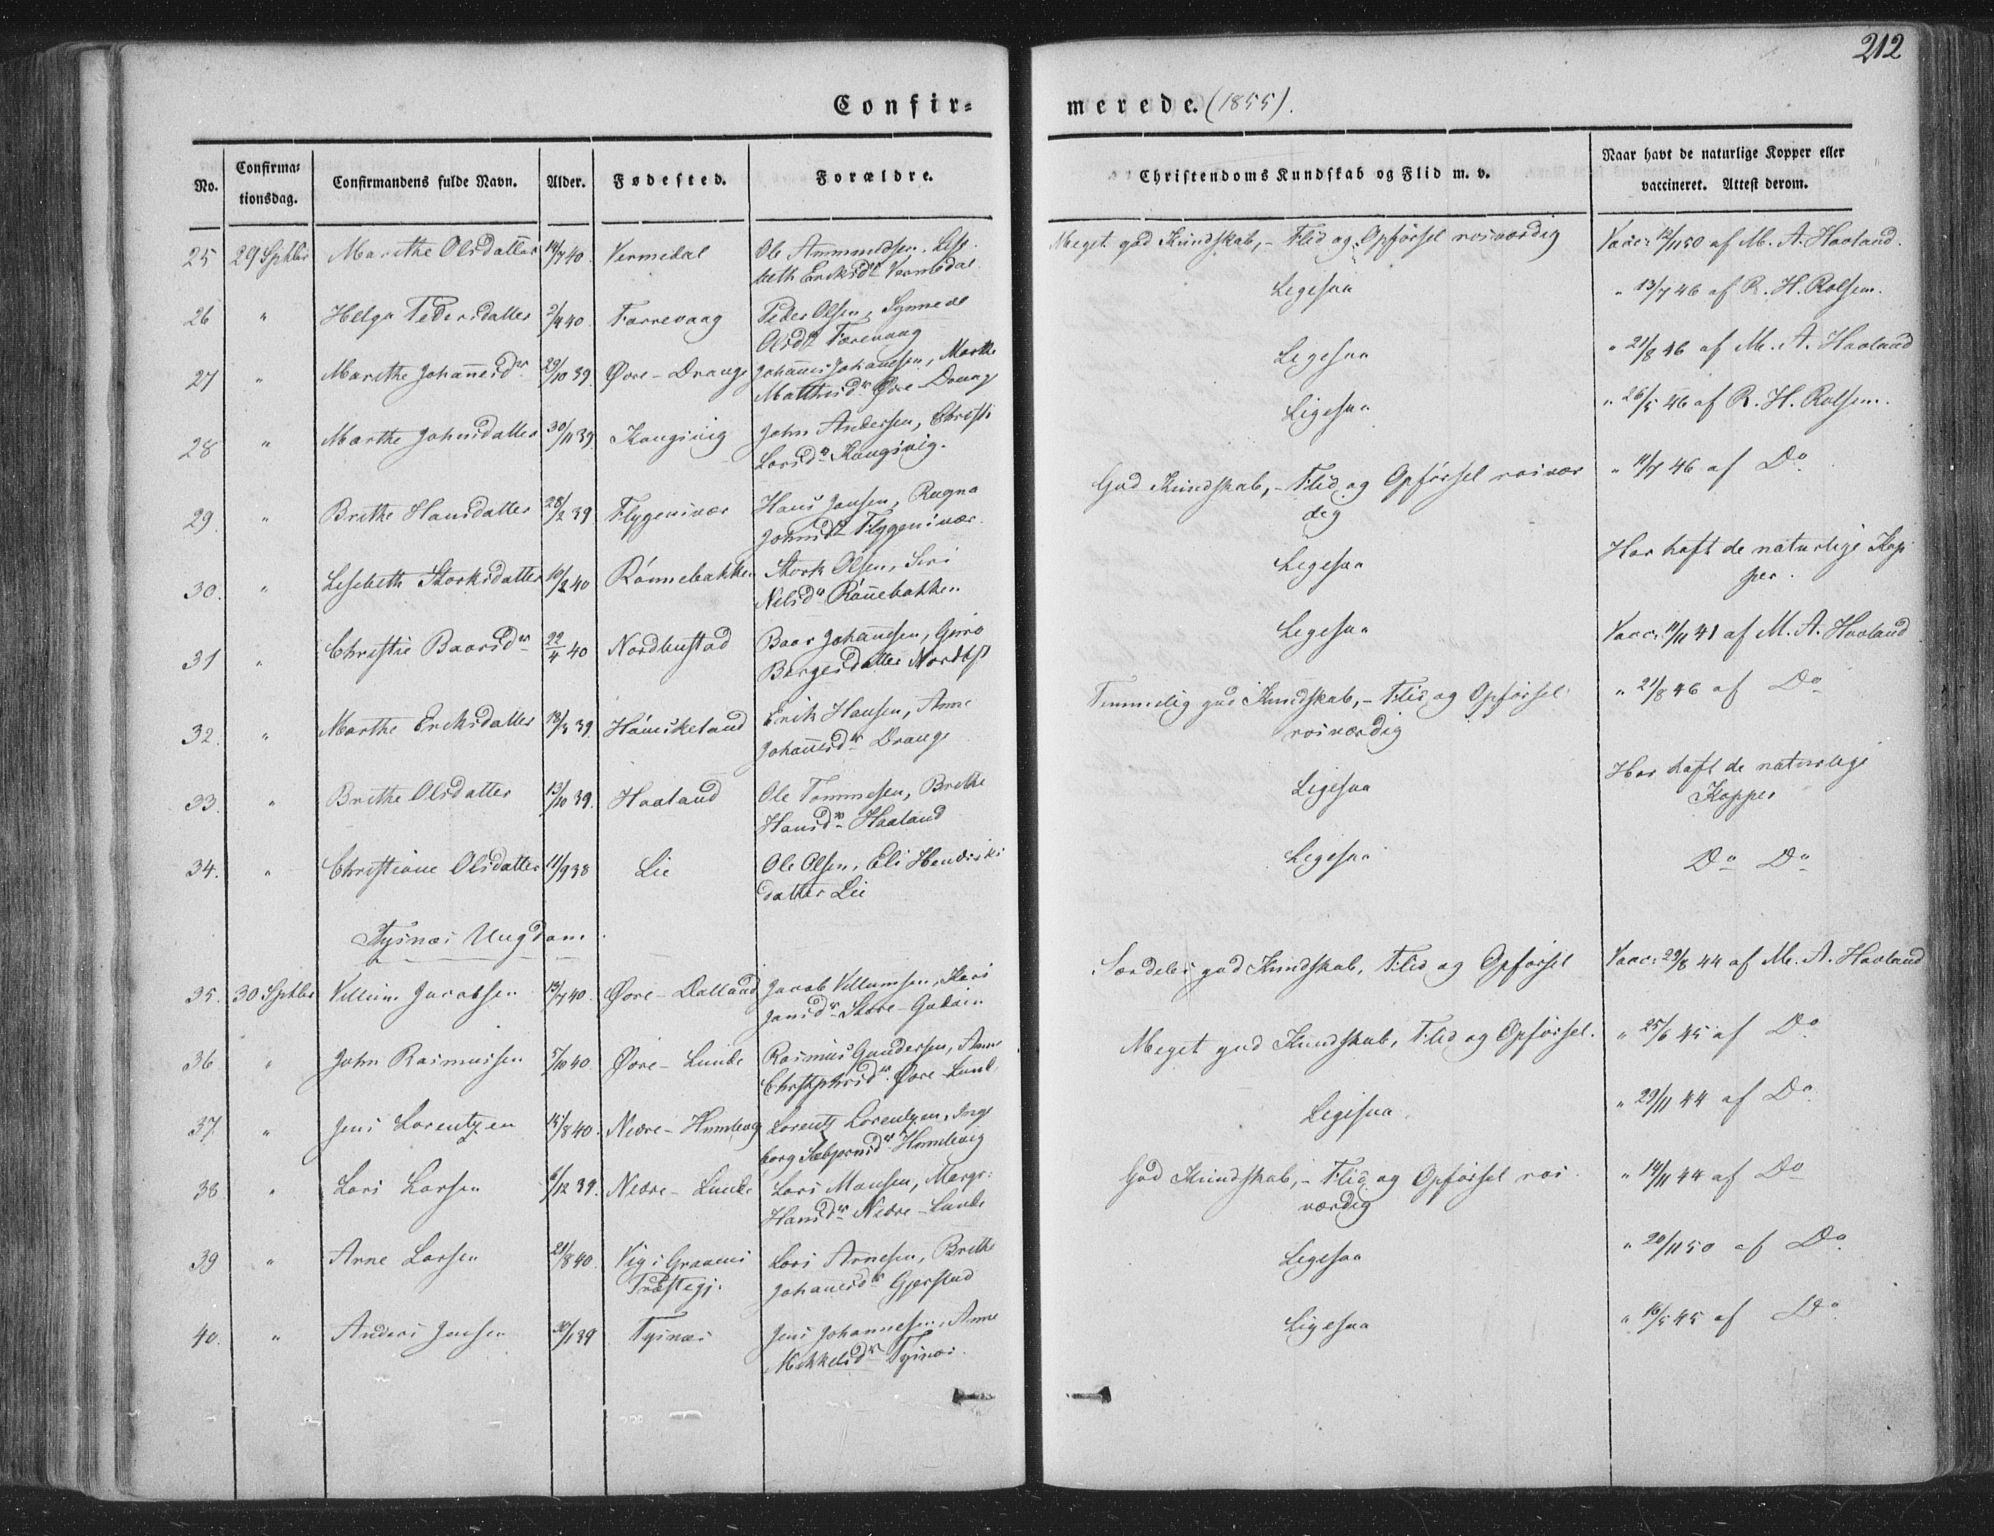 212
Confir-
merede. (1855).
No.
Confirma-
tionsdag.
Confirmandens fulde Navn.
Alder.
Fødested.
Forældre.
Christendoms Kundskab og Flid m. v.
Naar havt de naturlige Kopper eller
vaccineret. Attest derom.
25 29 Sptbr Marithe Olsdatter 14/7 40. Vermedal Ole Ammundsen, Lise-
beth Eriksdr Vermedal
Meget god Kundskab, - Flid og Opførsel rosværdig Vacc: 12/11 50 af M. A. Havland.
26 " Helga Pedersdatter 2/4 40. Færrevaag Peder Olsen, Synneve
Olsdr Færevaag
Ligesaa " 13/7 46 af R. H. Rolfsen.
27 " Marithe Johañesdr 29/10 39. Øvre-Drange Johañes Johañesen, Marthe
Matthisdr Øvre Drange
Ligesaa " 21/8 46 af M. A. Havland
28 " Marthe Johnsdatter 30/11 39. Kongsvig John Andersen, Christi
Larsdr Kongsvig.
Ligesaa " 26/5 46 af R. H. Rolfsen.
29. " Brithe Hansdatter 28/2 39 Flygensvær Hans Jansen, Ragna
Johnsdr Flyggensvær.
God Kundskab, - Flid og Opførsel rosvær
dig " 11/7 46 af Do
30. " Lisebeth Storksdatter 10/2 40 Rønnebakken Stork Olsen, Siri
Nelsdr Røñebakken
Ligesaa Har haft de naturlige Kop-
per.
31 " Christie Baarsdr 22/4 40 Nordbustad Baar Johañesen, Guro
Børgesdatter Nordbst
Ligesaa Vacc: 11/11 41 af M. A. Havland
32. " Marthe Eriksdatter 18/3 39. Høinsketand Erik Hansen, Anne
Johañesdr Drange
Temmelig god Kundskab, - Flid og Opførsel
rosværdig " 21/8 46 af Do
33. " Brithe Olsdatter 13/10 39. Haaland Ole Tommesen, Brithe
Hansdr Haaland
Ligesaa Har haft de naturlige
Kopper
34. " Christiane Olsdatter 11/9 38 Lie Ole Olsen, Eli Hendriks
datter Lie
Ligesaa Do Do
Tysnæs Ungdom.
35. 30 Sptbr Villum Jacobsen 13/7 40. Øvre-Dalland Jacob Villumsen, Kari
Jansdr Store-Godøen
Særdeles god Kundskab, Flid og Opførsel Vacc: 29/8 44 af M. A. Havland
36 " John Rasmussen 5/10 40 Øvre-Lunde Rasmus Gundersen, Anne
Christophersdr Øvre-Lund.
Meget god Kundskab, Flid og Opførsel. " 25/6 45 af Do
37. " Jens Lorentzen 15/8 40. Nedre-Humlevig Lorentz Lorentzen, Inge
borg Sæbjørnsdr Humlevig
Ligesaa. " 29/11 44 af Do
38. " Lars Larsen 6/12 39. Nedre-Lunde Lars Monsen, Margr:
Hansdr Nedre-Lunde
God Kundskab, - Flid og Opførsel ros
værdig " 14/11 44 af Do
39 " Arne Larsen 21/8 40. Vig i Gravens
Præstegj. Lars Arnesen, Brithe
Johañesdr Gjerstad
Ligesaa " 20/11 50 af Do
40. " Anders Jensen 30/1 39 Tysnæs Jens Johannesen, Anne
Mikkelsdr Tysnæs.
Ligesaa " 16/5 45 af Do